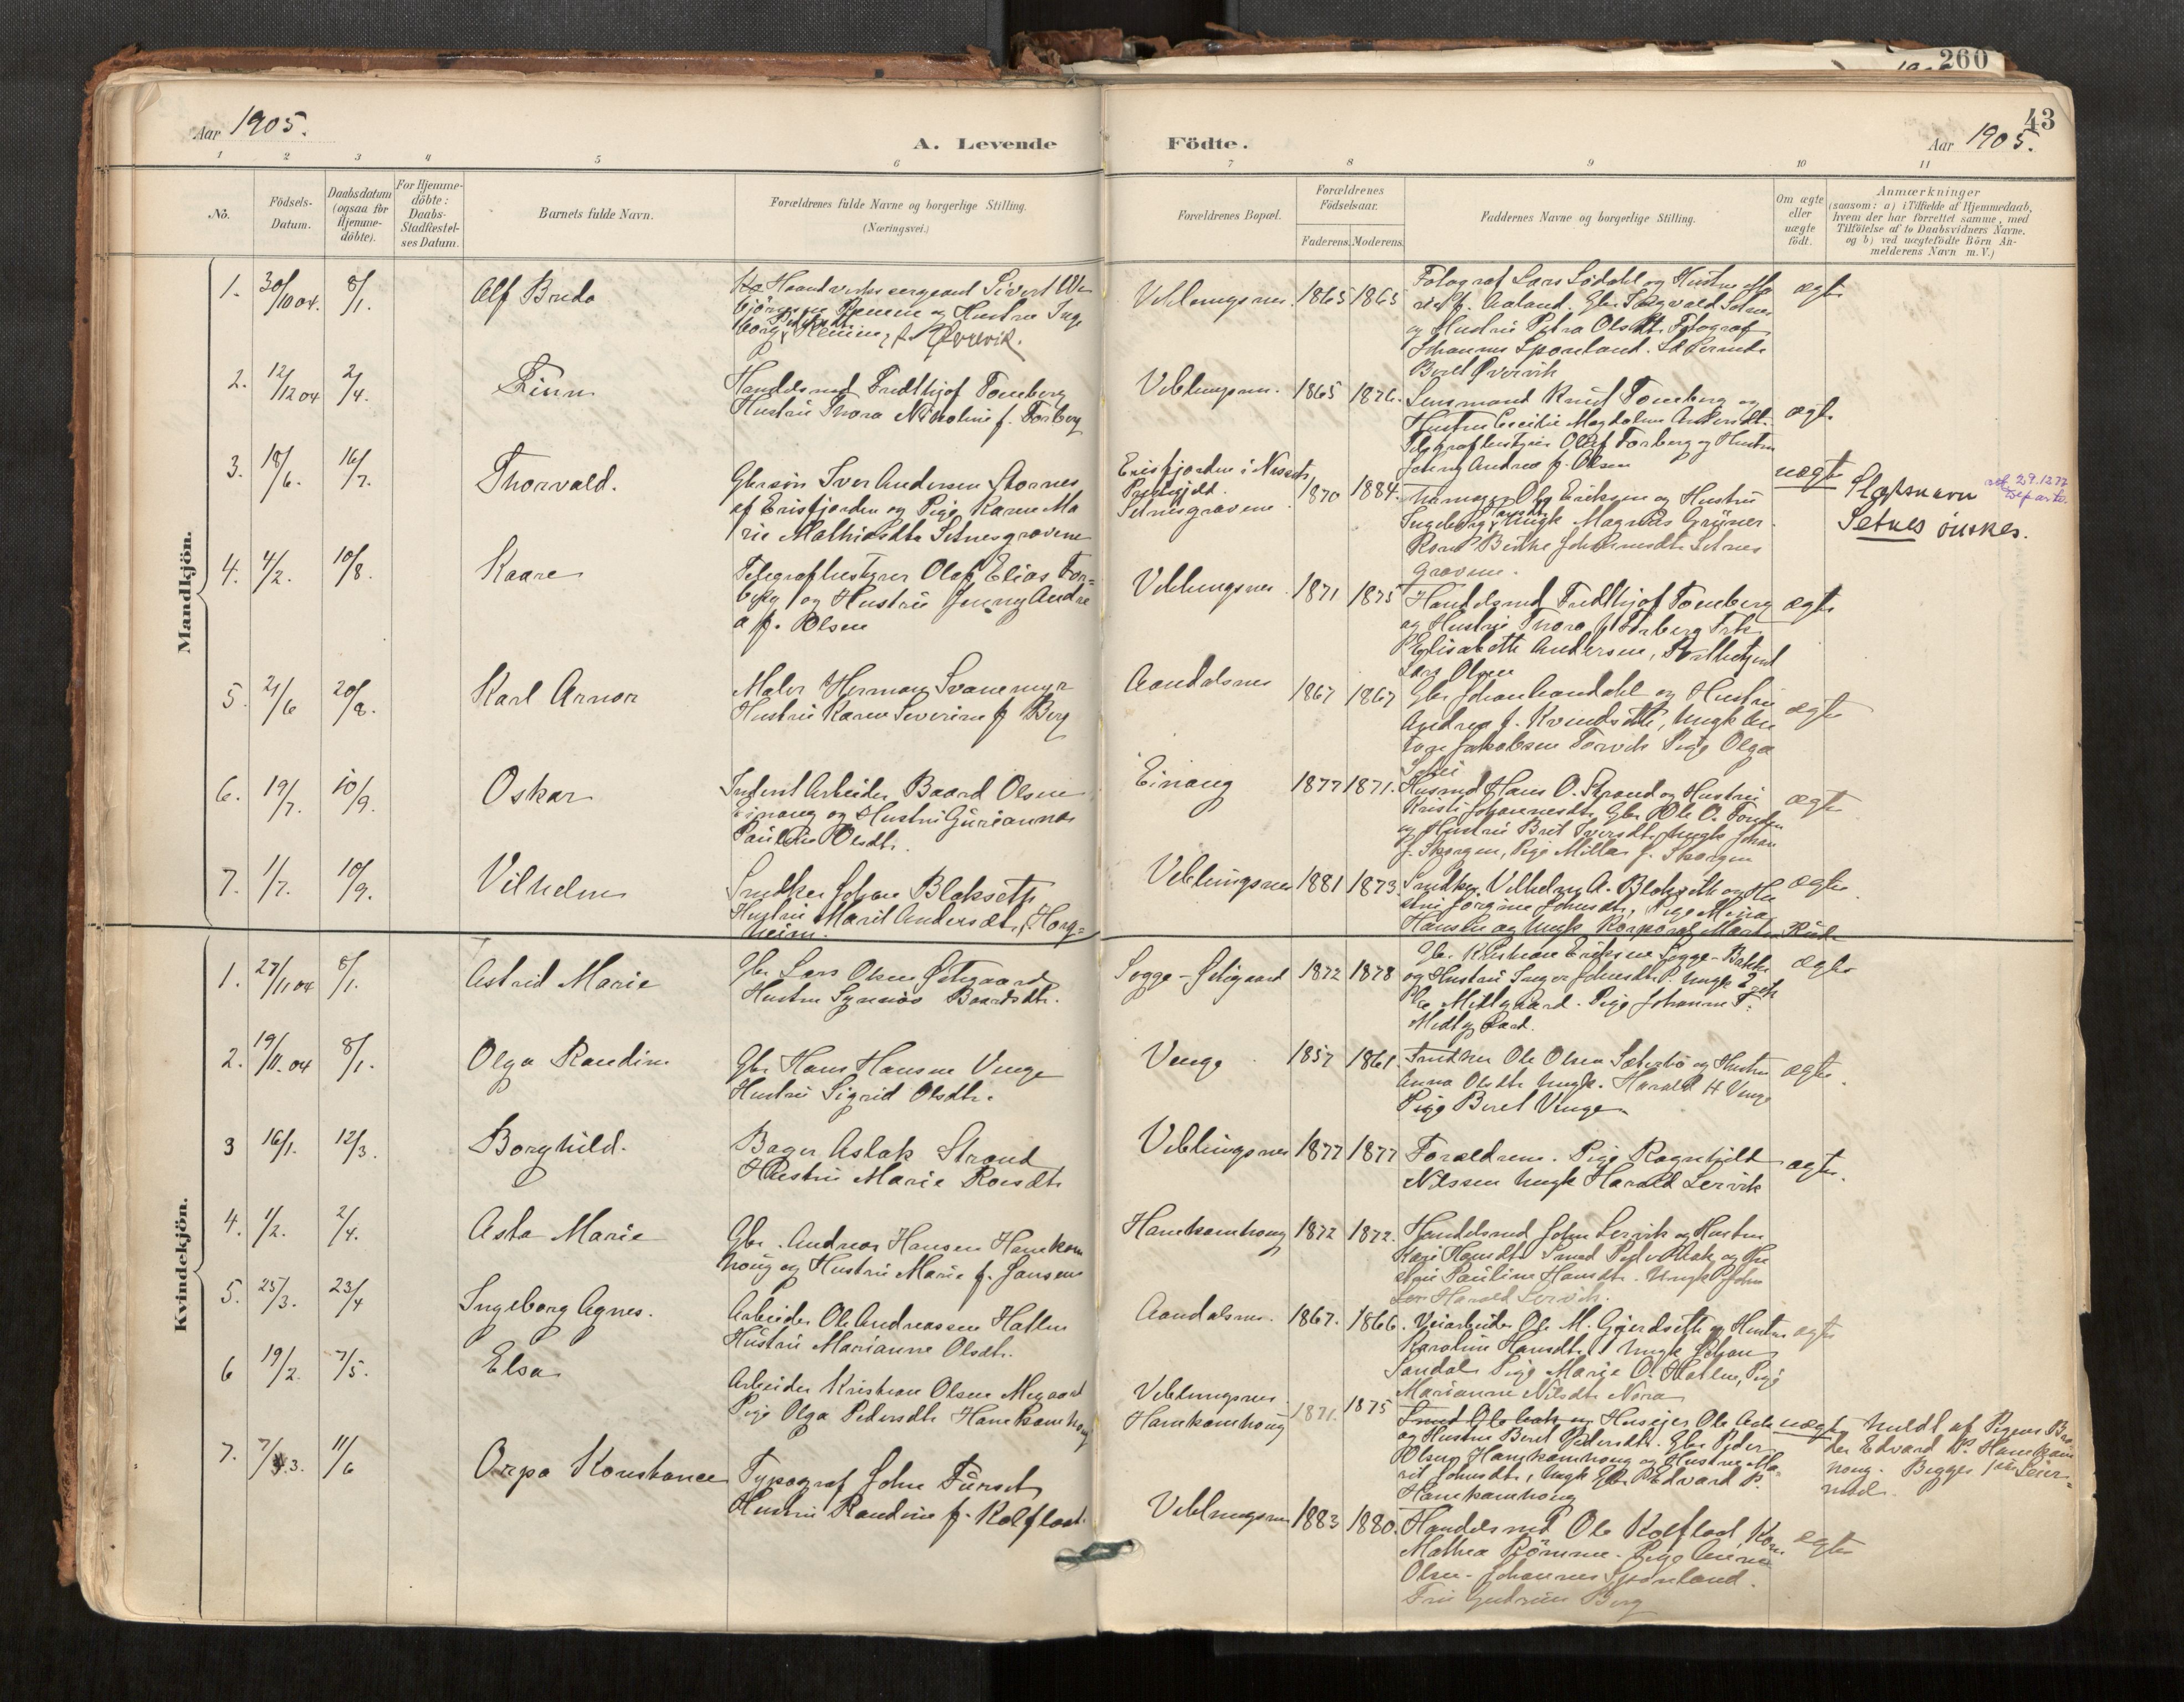 260
43
Aar 1905.
A. Levende Födte.
Aar 1905.
1 2 3 4 5 6 7 8 9 10 11
No.
Födsels-Datum.
Daabsdatum (ogsaa for Hjemme-döbte).
For Hjemme-döbte: Daabs-Stadfæstel-ses Datum.
Barnets fulde Navn.
Forældrenes fulde Navne og borgerlige Stilling.
(Næringsvei.)
Forældrenes Bopæl.
Forældrenes Födselsaar.
Faderens. Moderens.
Faddernes Navne og borgerlige Stilling.
Om ægte eller uægte födt.
Anmærkninger
(saasom: a) i Tilfælde af Hjemmedaab,
hvem der har forrettet samme, med
Tilföielse af to Daabsvidners Navne.
og b) ved uægtefödte Börn An-
melderens Navn m.V.)
Mandkjön.
1. 30/10 04. 8/1. Alf Breda
Haandverkssergeant Sivert
og Hustru Inge
borg
Veblungsnes. 1865 1865
Fotograf Lars Lödahl og Hustru Ma
f. Aaland. Gbr. Setnes
og Hustru Petra Olsdt. Fotograf
Johannes Sponland.
Beret Övrevik
ægte
2. 12/12 04 2/4. Finn
Handelsmd Fridthjof Tomberg
Hustru Thora Nikoline f. Forberg
Veblungsnes. 1865 1876.
Lensmand Knut Tomberg og
Hustru Cecilie Magdalene Andersdt.
Telegrafbestyrer Olaf Forberg og Hustru
Jenny Andrea f. Olsen
ægte
3. 18/6. 16/7. Thorvald.
Gbrsön Iver Andersen Stornes
af Erisfjorden og Pige Karen Ma
rie Mathiasdtr Setnesgrovene
Erisfjorden i Nesset
Prestegjeld.
Setnesgrovene. 1870 1884.
Ole Eriksen og Hustru
Ingeborg Ungk Magnus Grüner.
Setnes
Grovene.
uægte
Slægtsnavn
Setnes önskes.
4. 4/2. 10/8. Kaare
Telegrafbestyrer Olaf Elias For=
berg og Hustru Jenny Andre
a f. Olsen
Veblungsnes. 1871 1875
Handelsmd Fridthjof Tomberg
og Hustru Thora f. Forberg Frk.
Elisabeth Andersen,
Lars Olsen
ægte
5. 21/6 20/8. Karl Arnor
Maler Herman Svanemyr
Hustru Karen Severine f Berg
Aandalsnes 1867 1867
Gbr Johan og Hustru
Andrea f. Ungk An
ton Jakobsen Torvik Pige Olga
ægte
6. 19/7. 10/9. Oskar
Inderst Arbeider Baard Olsen
Einang og Hustru Gurianna
Pauline Olsdt.
Einang 1877 1871.
Husmd Hans O. Strand og Hustru
Kristi Johannesdt. Gbr Ole O.
og Hustru Brit Iversdt. Ungk Johan
J. Skorgen, Pige Milla J. Skorgen
ægte
7. 1/7. 10/9. Vilhelm
Snedker Johan Blakseth
Hustru Marit Andersdt. Horg=
heim.
Veblungsnes 1881 1873.
Snedker Vilhelm A. Blakseth og Hu
stru Jorgine Johnsdt., Pige
og Ungk Korporal
ægte
Kvindekjön.
1. 27/11 04 8/1. Astrid Marie
Gbr Lars Olsen Östigaard
Hustru Synnöv Baardsdtr.
Sogge-Östigaard 1872 1878
Gbr. Kristian Eriksen Sogge-Bakken
og Hustru Inger Johnsdt. Ungk
Ole Midtgaard. Pige Johanne
Midtgaard.
ægte
2. 19/11.04 8/1. Olga Randine
Gbr Hans Hansen Venge
Hustru Sigrid Olsdtr.
Venge 1857 1861.
Snedker Ole Olsen Sæterbö og Hustru
Anna Olsdtr Ungk. Harald H Venge
Pige Beret Venge
ægte.
3 16/1. 12/3. Borghild.
Bager Aslak Strand
Hustru Marie
Veblungsnes 1877 1877
Forældrene. Pige Ragnhild
Nilssen Ungk Harald Lervik
ægte.
4. 1/2. 2/4. Asta Marie
Gbr. Andreas Hansen Hamekam
houg og Hustru Marie f. Jansen
Hamekamhoug 1872 1872.
Handelsmd John Lervik og Hustru
Kari Smed Peder Aak og Hu
stru Pauline Hansdt. Ungk
Harald Lervik.
5. 25/3. 23/4 Ingeborg Agnes.
Arbeider Ole Andreassen Hatlen
Hustru Marianne Olsdt.
Aandalsnes. 1867. 1866.
Veiarbeider Ole M. Gjerdseth og Hustru
Karoline Hansdt. Ungk Johan
Sandal Pige Marie O. Hatlen, Pige
Marianne Nilsdt. Nora
ægte
6 19/2. 7/5. Elsa
Arbeider Kristian Olsen
Pige Olga Pedersdt Hamekamhoug
Veblungsnes
Hamekamhoug 1871. 1875
Smed Ole Aak og Husejer Ole Aak
og Hustru Beret Pedersdt. Gbr Peder
Olsen Hamekamhoug og Hustru Ma-
rit Johnsdt, Ungk Gbr Edvard P.
Hamekamhoug
uægte
Meldt af Pigens Bro
der Edvard P. Hamekam
houg. Begges 1ste Leier=
maal.
7. 7/3. 11/6 Orpa Konstance
Typograf John Fürset
Hustru Randine f. Kolflaat.
Veblungsnes 1883 1880.
Handelsmd Ole Kolflaat,
Mathea Römme. Pige Anna
Olsen - Johannes Sponland.
Fru Gudrun Berg
ægte